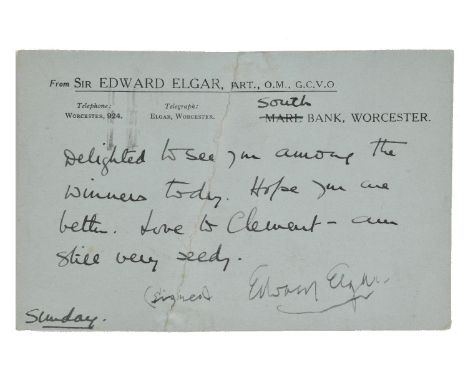 From SIR EDWARD ELGAR, BART., O.M., G.C.V.O
Telephone: Telegraph: South
WORCESTER, 924. ELGAR, WORCESTER. MARL BANK, WORCESTER.
Delighted to see you among the
winners today. Hope you are
better. Love to Clement – am
still very seedy.
(signed) Edward Elgar.
Sunday.